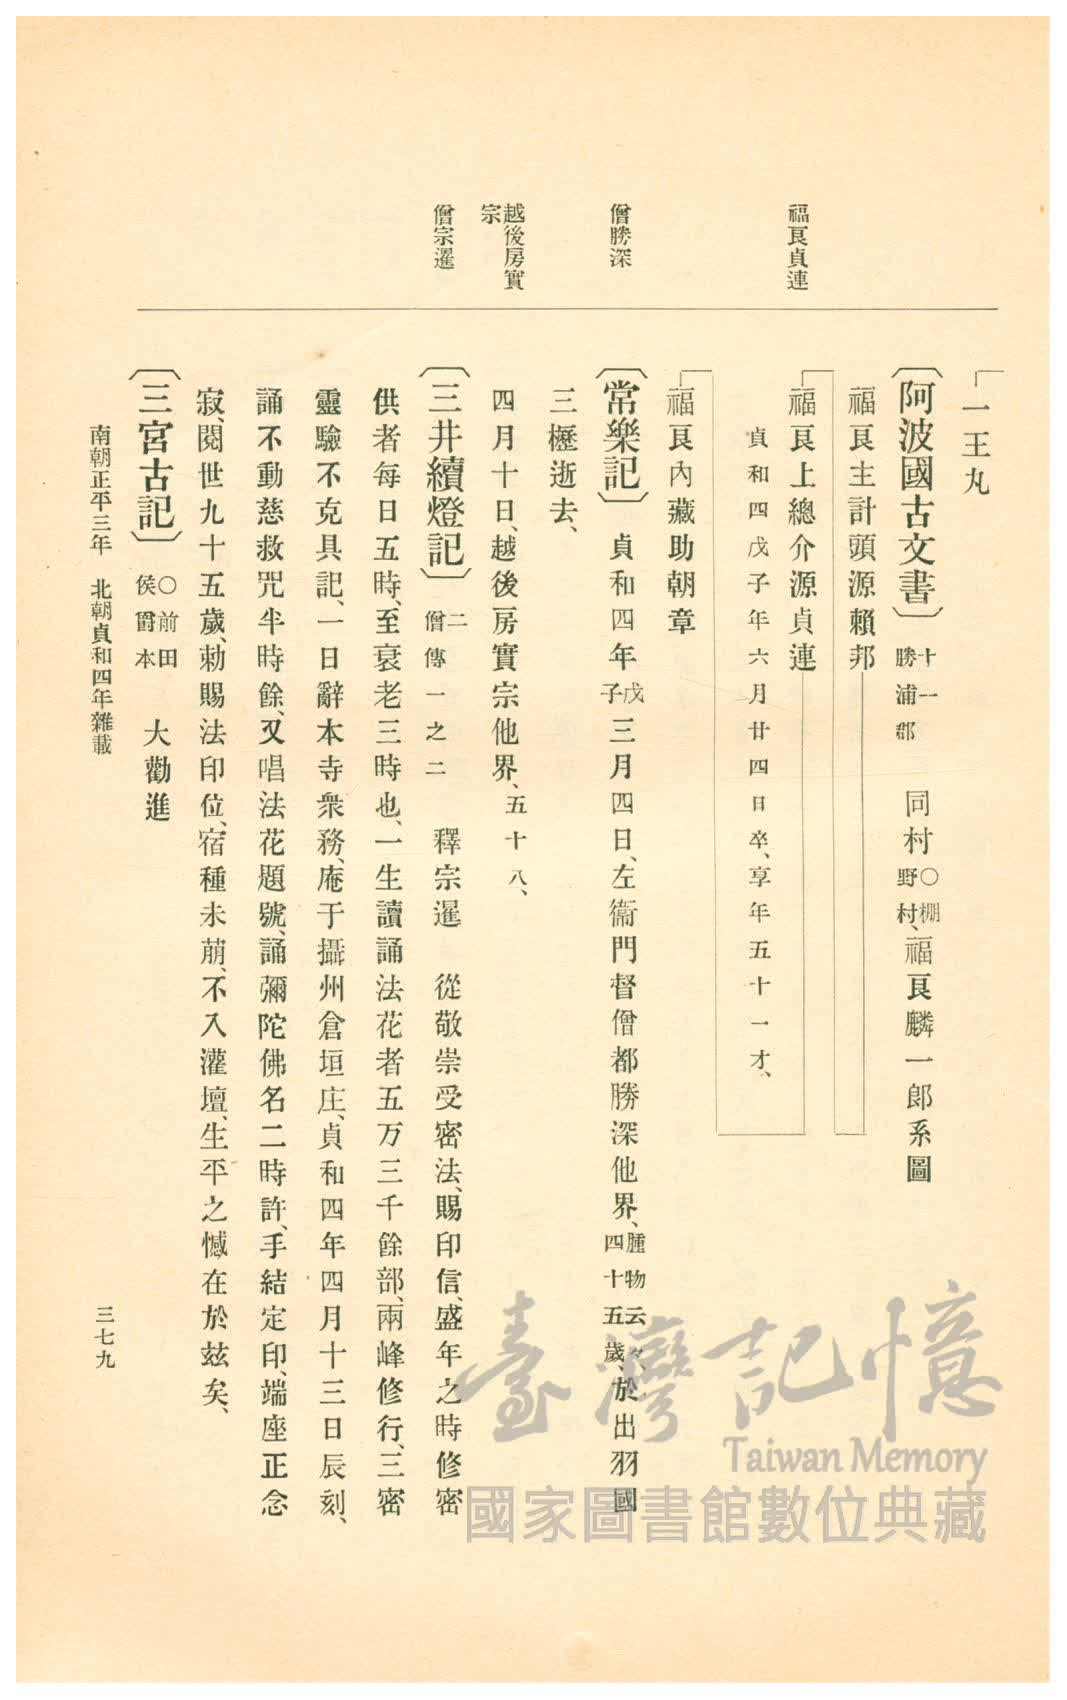 福良貞連
僧勝深
越後房實
宗
僧宗暹
一王丸
〔阿波國古文書〕十一勝浦郡 同村〇棚野村、福良麟一郎系圖
福良主計頭源賴邦
福良上總介源貞連
貞和四戊子年六月廿四日卒、享年五十一才、
福良內藏助朝章
〔常樂記〕貞和四年戊子三月四日、左衞門督僧都勝深他界、腫物云々、四十五歲、於出羽國
三樅逝去、
四月十日、越後房實宗他界、五十八、
〔三井續燈記〕二僧傳一之二 釋宗暹 從敬崇受密法、賜印信、盛年之時修密
供者每日五時、至衰老三時也、一生讀誦法花者五万三千餘部、兩峰修行、三密
靈驗不克具記、一日辭本寺衆務、庵于攝州倉垣庄、貞和四年四月十三日辰刻、
誦不動慈救咒半時餘、又唱法花題號、誦彌陀佛名二時許、手結定印、端座正念
寂、閱世九十五歲、勅賜法印位、宿種未萠、不入灌壇、生平之憾在於玆矣、
〔三宮古記〕〇前田侯爵本 大勸進
南朝正平三年 北朝貞和四年雜載
三七九
臺灣記憶
Taiwan Memory
國家圖書館數位典藏